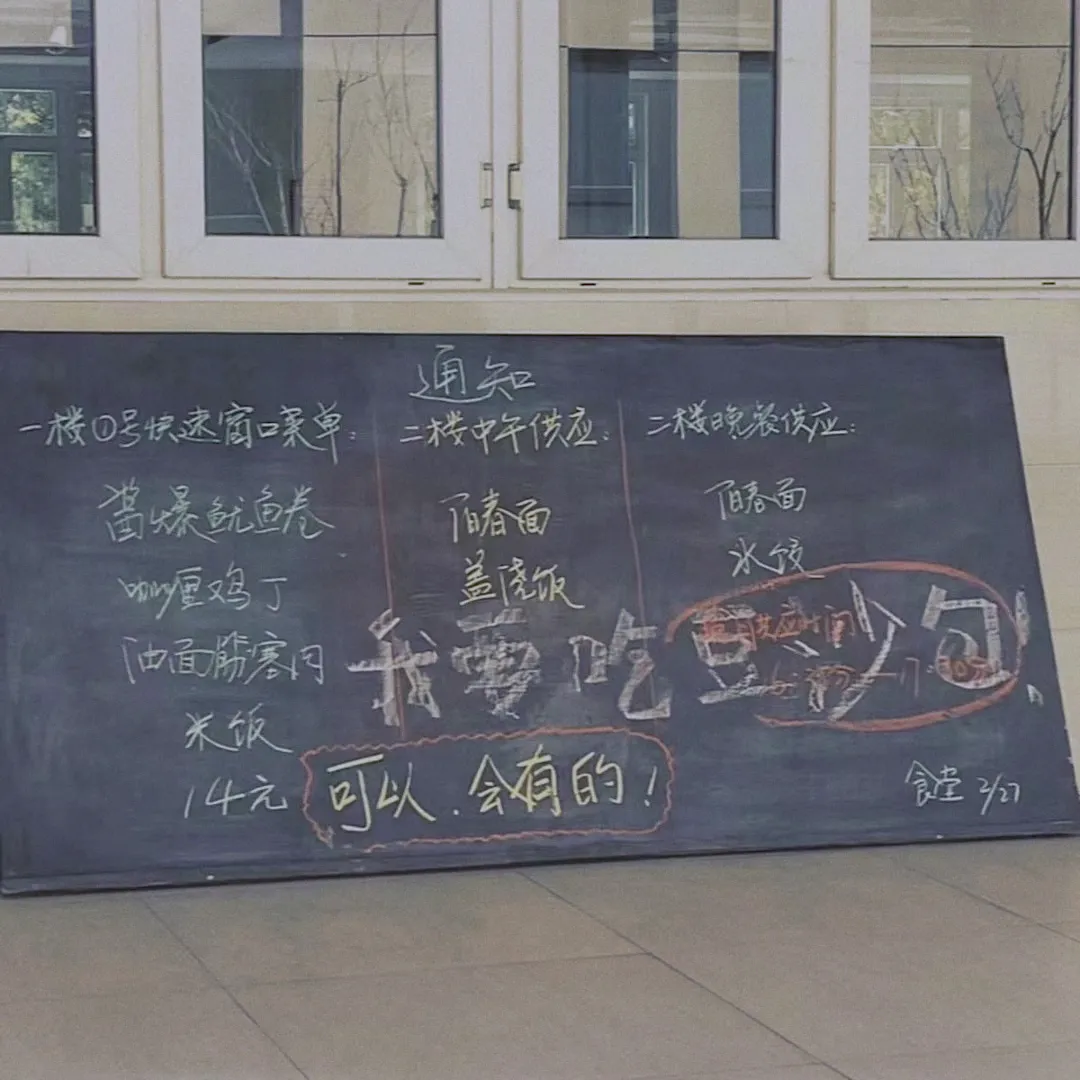 通知
一楼①号快速窗口菜单:
酱爆鱿鱼卷
咖喱鸡丁
油面筋塞肉
米饭
14元
二楼中午供应:
阳春面
盖浇饭
二楼晚餐供应:
阳春面
水饺
供应时间
我要吃豆沙包!
可以、会有的!
食堂 2/27